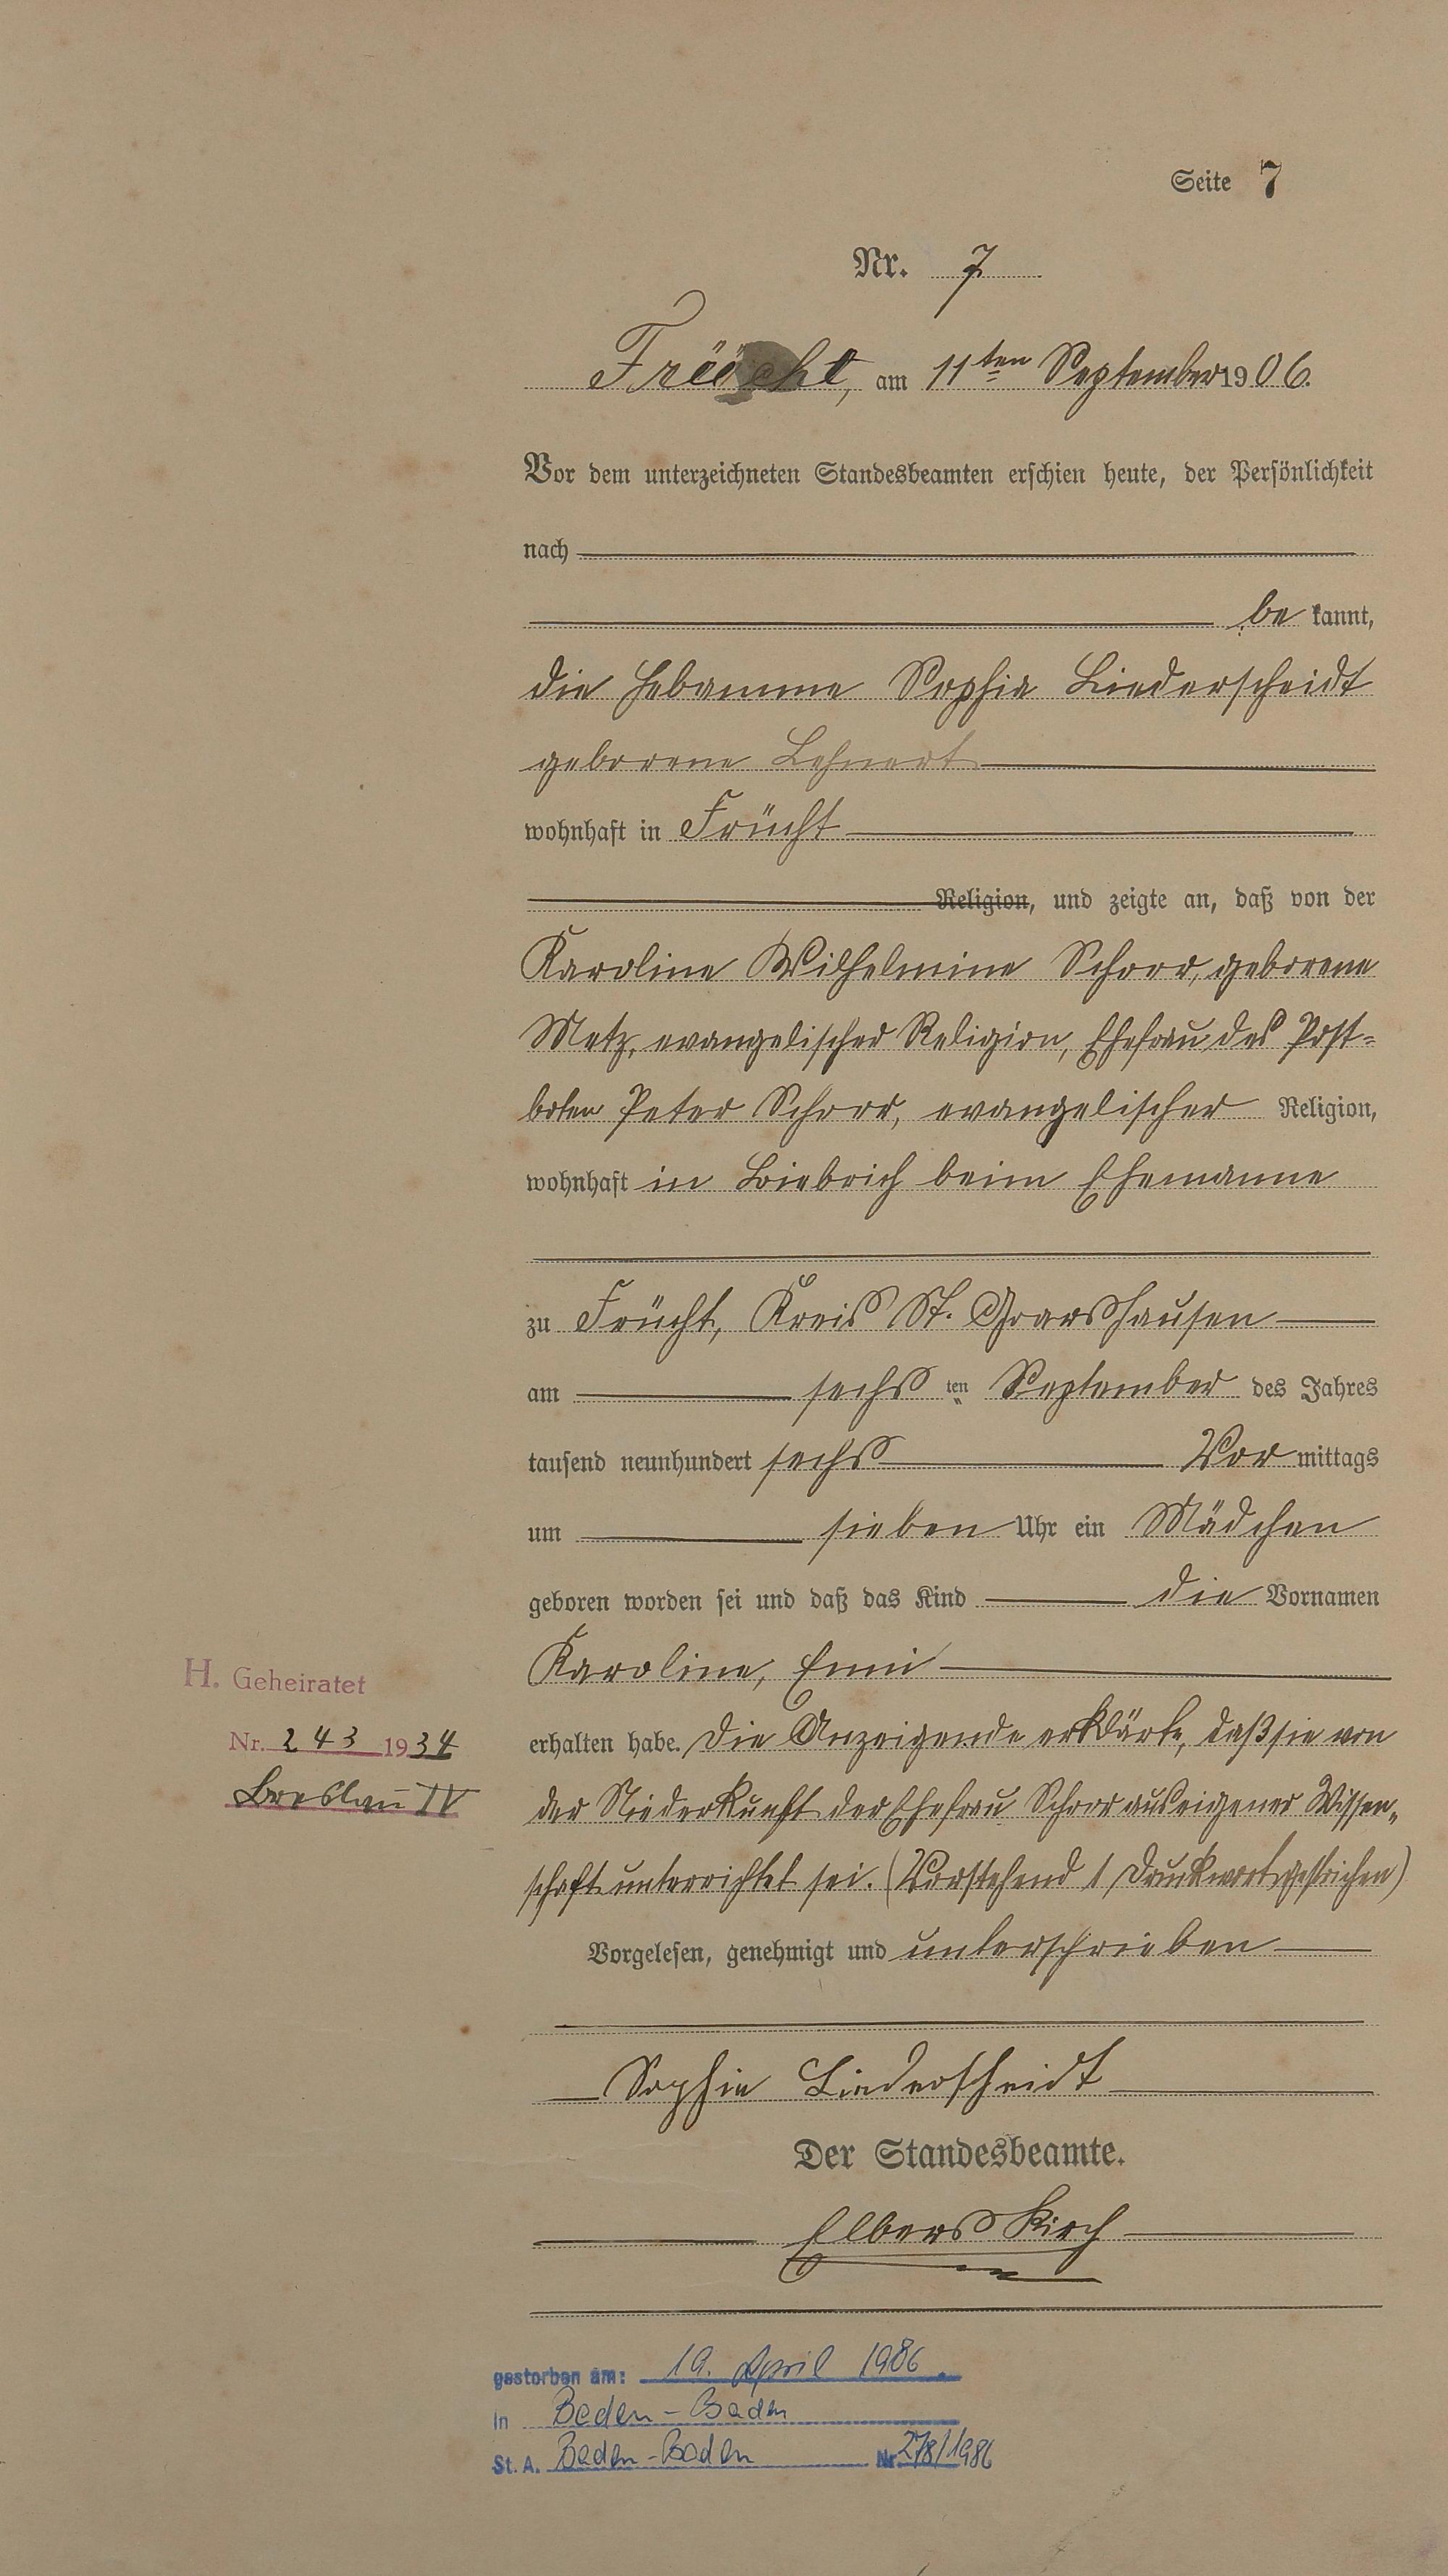 Seite 7
Nr. 7
Frücht, am 11ten September 1906.
Vor dem unterzeichneten Standesbeamten erschien heute, der Persönlichkeit
nach
be kannt,
die Hebamme Sophia Liederscheidt
geborene Lehnert
wohnhaft in Frücht
Religion, und zeigte an, daß von der
Karoline Wilhelmine Schorr, geborene
Metz, evangelischer Religion, Ehefrau des Post-
boten Peter Schorr, evangelischer Religion,
wohnhaft in Biebrich beim Ehemanne
zu Frücht, Kreis St. Goarshausen
am sechs ten September des Jahres
tausend neunhundert sechs Vor mittags
um sieben Uhr ein Mädchen
geboren worden sei und daß das Kind die Vornamen
Karoline, Emmi
H. Geheiratet
erhalten habe. Die Anzeigende erklärte, daß sie von
Nr. 243 1934
der Niederkunft der Ehefrau Schorr aus eigener Wissen„
Breslau IV
schaft unterrichtet sei. (Vorstehend 1 Druckwort gestrichen)
Vorgelesen, genehmigt und unterschrieben
Sophie Liederscheidt
Der Standesbeamte.
Elberskirch
gestorben am: 19. April 1986.
in Baden-Baden
St. A. Baden-Baden Nr 278/1986